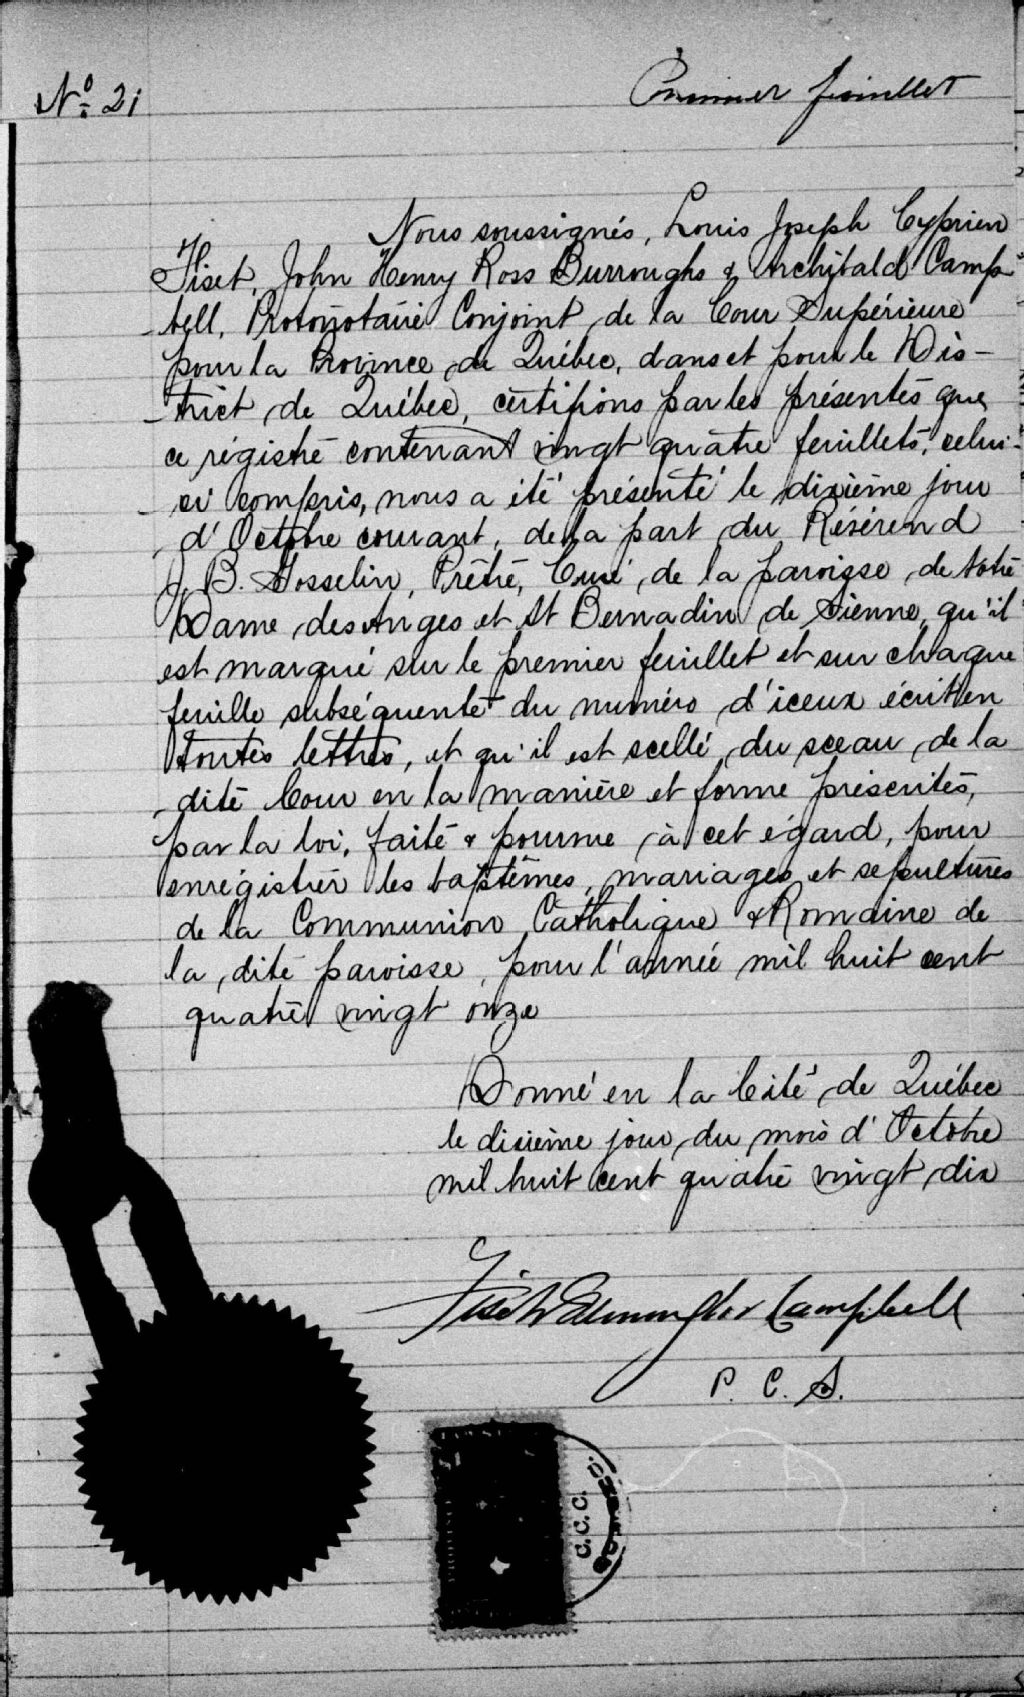 No 21
Premier feuillet
Nous soussignés, Louis Joseph Cyprien
Fiset, John Henry Ross Burroughs & Archibald Camp-
-bell, Protonotaire Conjoint de la Cour Supérieure
pour la Province de Québec, dans et pour le Dis-
-trict de Québec, certifions par les présentes que
ce régistre contenant vingt quatre feuillets, celui-
-ci compris, nous a été présenté le dixième jour
d'Octobre courant, de la part du Révérend
J. B. Gosselin, Prêtre, Curé de la paroisse de Notre
Dame des Anges et St Bernadin de Sienne, qu'il
est marqué sur le premier feuillet et sur chaque
feuille subséquente du numéro d'iceux écrit en
toutes lettres, et qu'il est scellé du sceau de la
dite Cour en la manière et forme préscrites,
par la loi, faite & pourvue à cet égard, pour
enrégistrer les baptêmes, mariages et sepultures
de la Communion Catholique & Romaine de
la dite paroisse, pour l'année mil huit cent
quatre vingt onze
Donné en la Cité de Québec
le dixième jour du mois d'Octobre
mil huit cent quatre vingt dix
Fiset Burroughs & Campbell
P. C. S.
C.C.C.